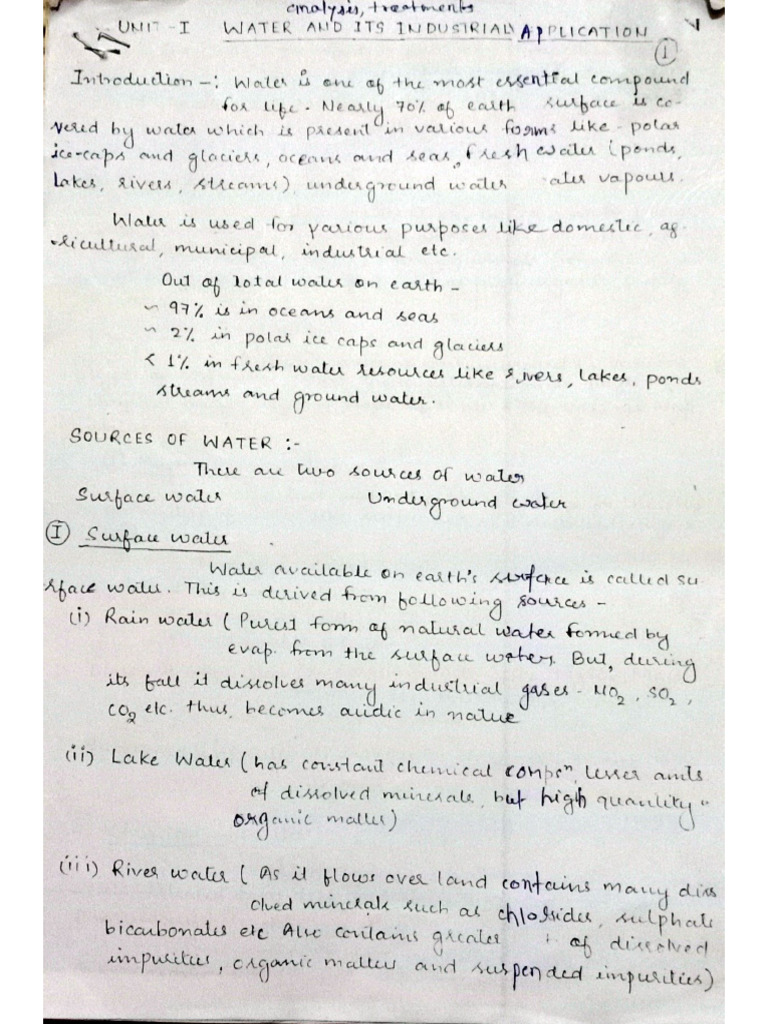 analysis, treatments
UNIT - I WATER AND ITS INDUSTRIAL APPLICATION
1
Introduction -: Water is one of the most essential compound
for life. Nearly 70% of earth surface is co-
vered by water which is present in various forms like - polar
ice-caps and glaciers, oceans and seas, fresh water (ponds,
lakes, rivers, streams), underground water ater vapours.
Water is used for various purposes like domestic, ag-
ricultural, municipal, industrial etc.
Out of total water on earth -
~ 97% is in oceans and seas
~ 2% in polar ice caps and glaciers
< 1% in fresh water resources like rivers, lakes, ponds
streams and ground water.
SOURCES OF WATER :-
There are two sources of water
Surface water Underground water
I Surface water
Water available on earth's surface is called su-
rface water. This is derived from following sources -
(i) Rain water ( Purest form of natural water formed by
evap. from the surface waters. But, during
its fall it dissolves many industrial gases - NO2, SO2,
CO2 etc. thus, becomes acidic in nature
(ii) Lake Water (has constant chemical compn, lesser amts
of dissolved minerals, but high quantity
organic matter)
(iii) River water ( As it flows over land contains many diss
olved minerals such as chlorides, sulphate
bicarbonates etc Also contains greater of dissolved
impurities, organic matter and suspended impurities)